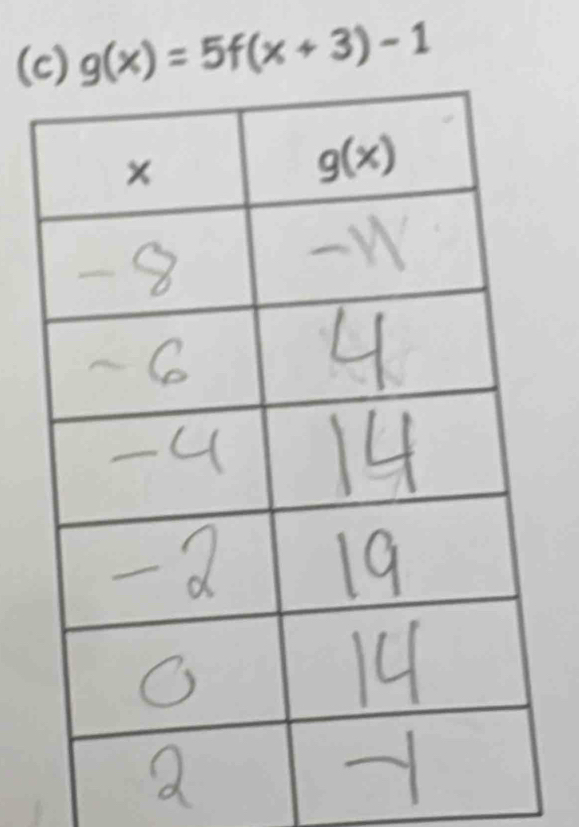 (c) g(x) = 5f(x + 3) - 1
x g(x)
-8 -11
-6 4
-4 14
-2 19
0 14
2 -1